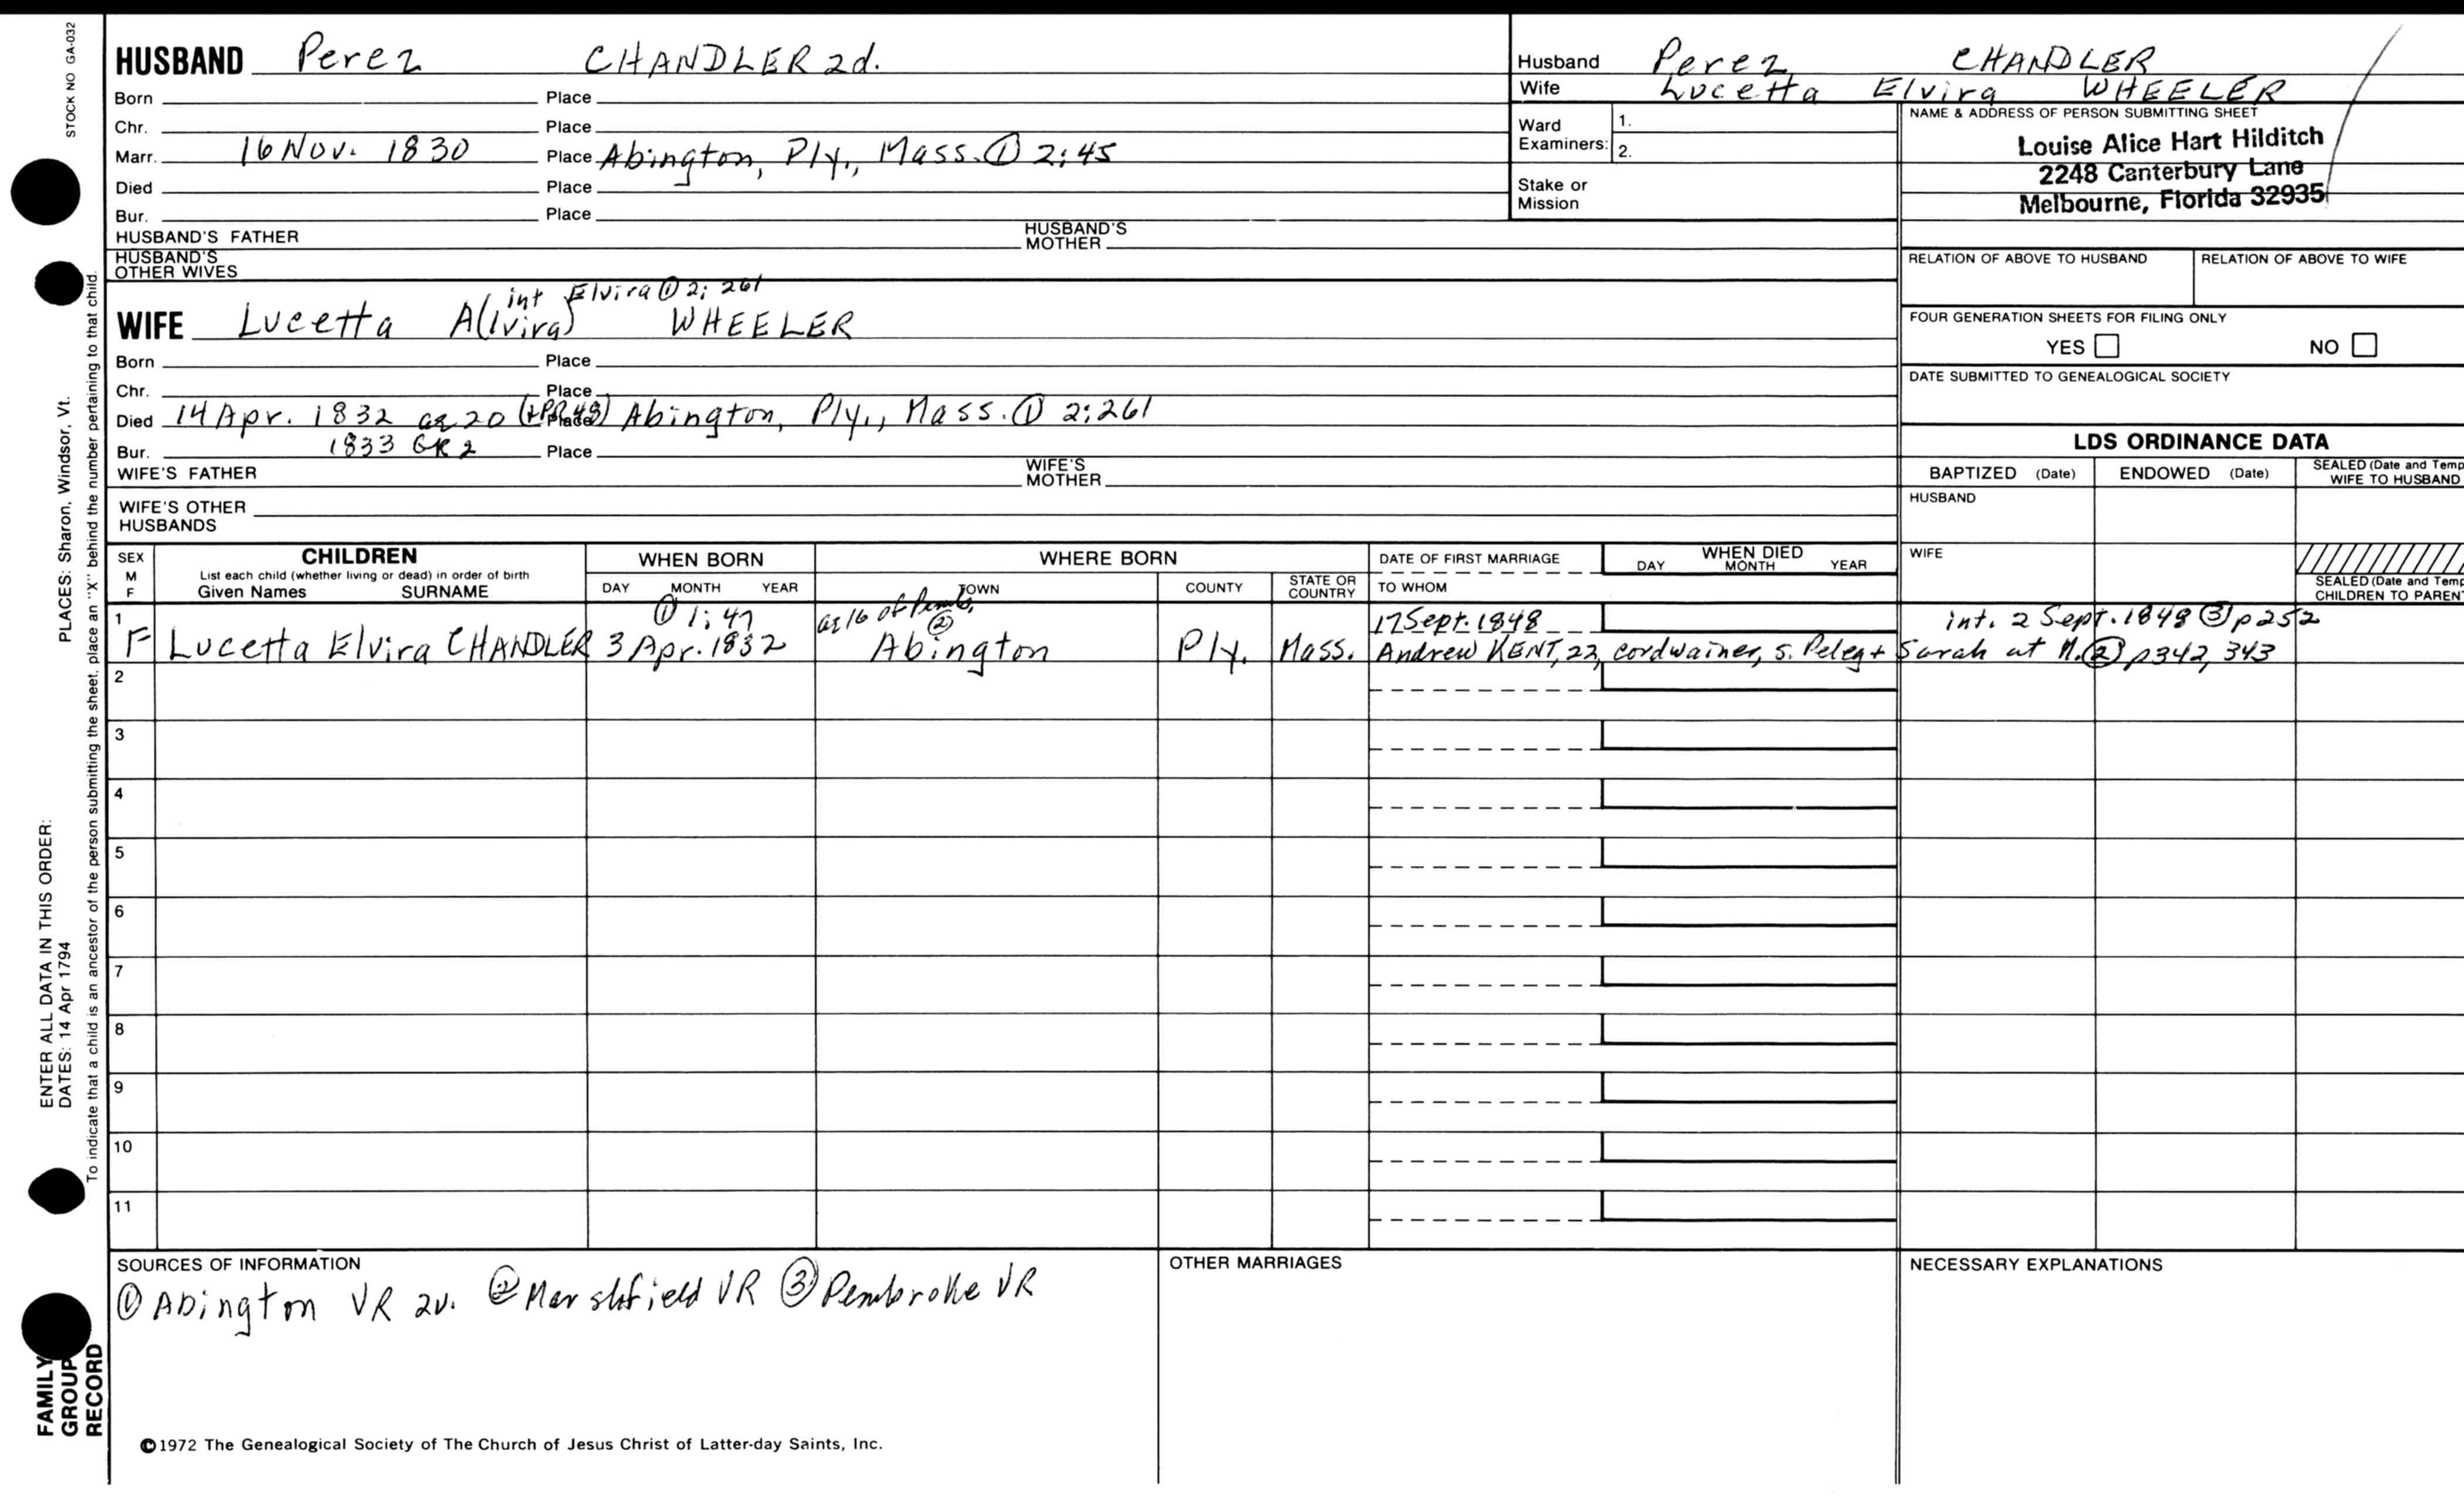 STOCK NO GA-032
HUSBAND Perez CHANDLER 2d.
Born Place
Chr. Place
Marr. 16 Nov. 1830 Place Abington, Ply., Mass. ① 2:45
Died Place
Bur. Place
HUSBAND'S FATHER HUSBAND'S MOTHER
HUSBAND'S OTHER WIVES
int Elvira ① 2; 261
WIFE Lucetta A(lvira) WHEELER
Born Place
Chr. Place
Died 14 Apr. 1832 ae 20 (+PR 48) Place Abington, Ply., Mass. ① 2:261
1833 GR 2
Bur. Place
WIFE'S FATHER WIFE'S MOTHER
WIFE'S OTHER HUSBANDS
Husband Perez CHANDLER
Wife Lucetta Elvira WHEELER
Ward Examiners: 1.
2.
Stake or Mission
NAME & ADDRESS OF PERSON SUBMITTING SHEET
Louise Alice Hart Hilditch
2248 Canterbury Lane
Melbourne, Florida 32935
RELATION OF ABOVE TO HUSBAND RELATION OF ABOVE TO WIFE
FOUR GENERATION SHEETS FOR FILING ONLY
YES NO
DATE SUBMITTED TO GENEALOGICAL SOCIETY
LDS ORDINANCE DATA
BAPTIZED (Date) ENDOWED (Date) SEALED (Date and Temp
WIFE TO HUSBAND
HUSBAND
WIFE
SEALED (Date and Temp
CHILDREN TO PARENT
SEX M F
CHILDREN
List each child (whether living or dead) in order of birth
Given Names SURNAME
WHEN BORN
DAY MONTH YEAR
WHERE BORN
TOWN COUNTY STATE OR COUNTRY
DATE OF FIRST MARRIAGE
TO WHOM
WHEN DIED
DAY MONTH YEAR
① 1:47 ae 16 of Pemb. ② 17 Sept. 1848 int. 2 Sept. 1848 ③ p252
1 F Lucetta Elvira CHANDLER 3 Apr. 1832 Abington Ply. Mass. Andrew KENT, 22, cordwainer, s. Peleg + Sarah at M. ② p342, 343
2
3
4
5
6
7
8
9
10
11
SOURCES OF INFORMATION
① Abington VR 2v. ② Marshfield VR ③ Pembroke VR
OTHER MARRIAGES
NECESSARY EXPLANATIONS
©1972 The Genealogical Society of The Church of Jesus Christ of Latter-day Saints, Inc.
ENTER ALL DATA IN THIS ORDER:
DATES: 14 Apr 1794 PLACES: Sharon, Windsor, Vt.
To indicate that a child is an ancestor of the person submitting the sheet, place an "X" behind the number pertaining to that child.
FAMILY
GROUP
RECORD